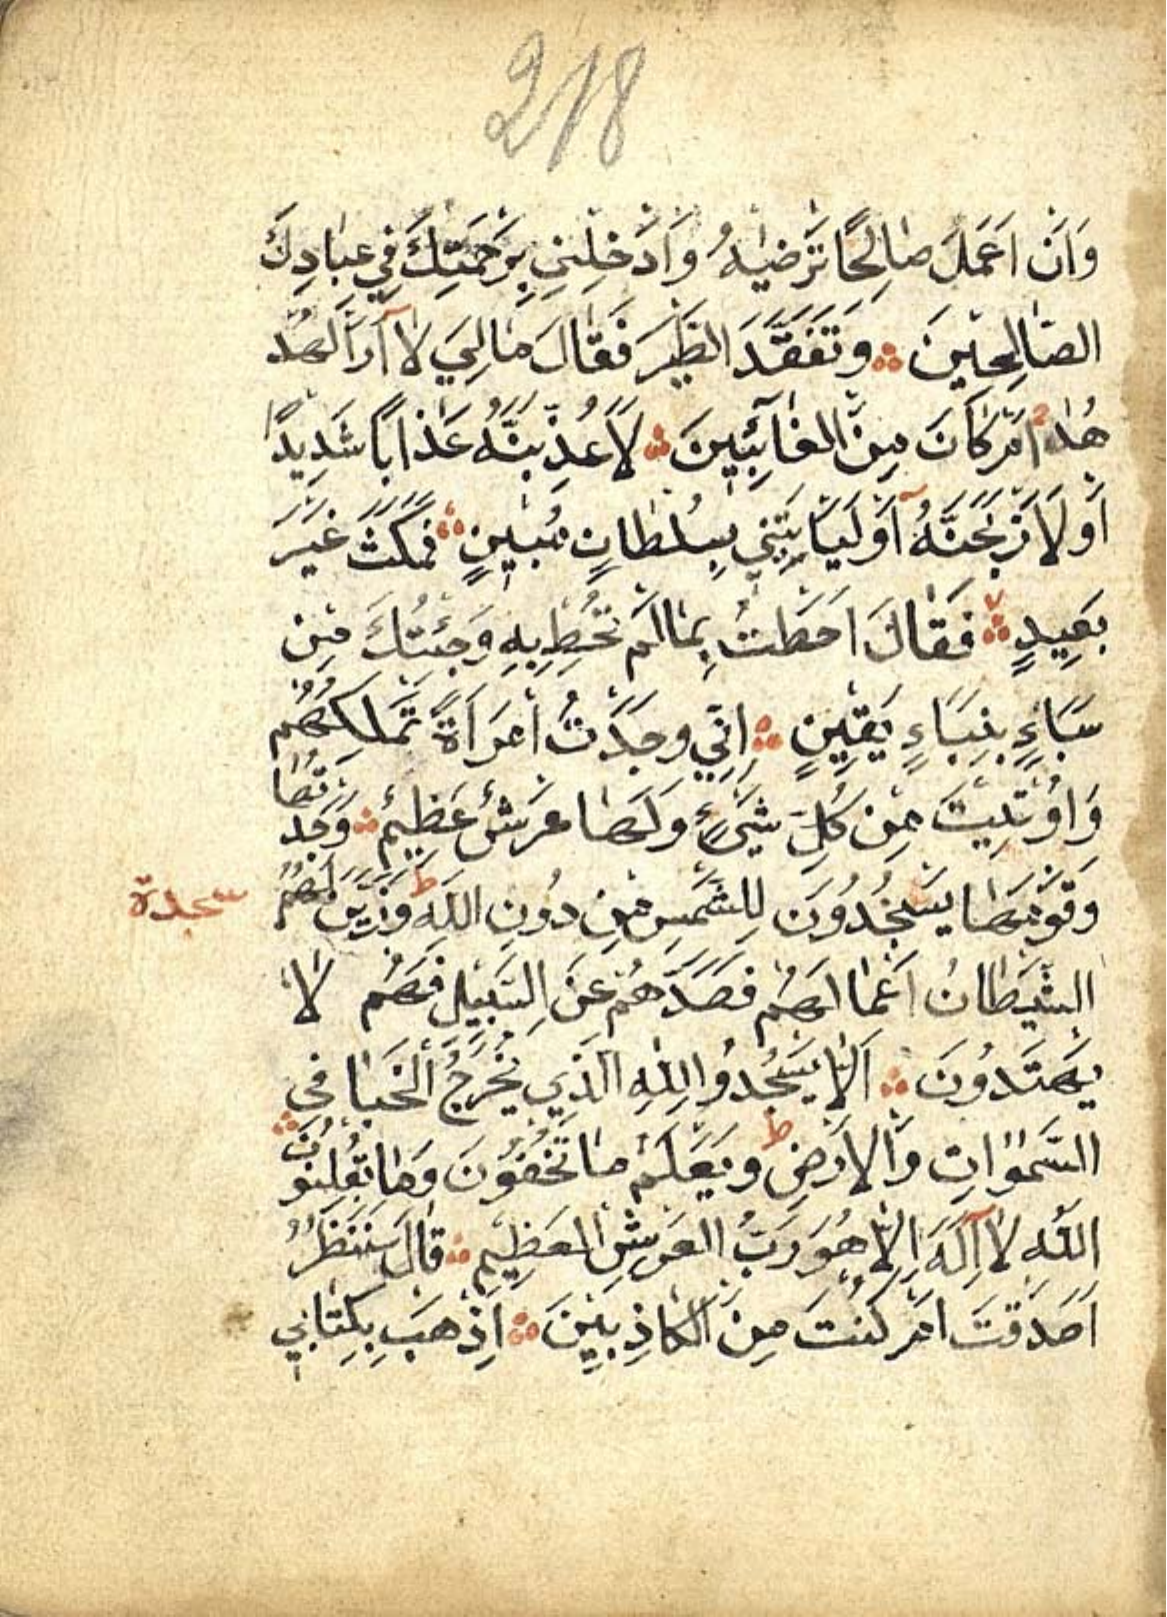 218
وَاَنْ اَعْمَلَ صَالِحًا تَرْضٰيهُ وَاَدْخِلْنِي بِرَحْمَتِكَ فِي عِبَادِكَ
الصَّالِحِينَ ۞ وَتَفَقَّدَ الطَّيْرَ فَقَالَ مَالِيَ لَا اَرَى الْهُدْ
هُدَ اَمْ كَانَ مِنَ الْغَائِبِينَ ۞ لَاُعَذِّبَنَّهُ عَذَابًا شَدِيدًا
اَوْ لَاَذْبَحَنَّهُ اَوْ لَيَاْتِيَنِّي بِسُلْطَانٍ مُبِينٍ ۞ فَمَكَثَ غَيْرَ
بَعِيدٍ ۞ فَقَالَ اَحَطْتُ بِمَا لَمْ تُحِطْ بِهِ وَجِئْتُكَ مِنْ
سَبَاءٍ بِنَبَاءٍ يَقِينٍ ۞ اِنِّي وَجَدْتُ امْرَاَةً تَمْلِكُهُمْ
وَاُوتِيَتْ مِنْ كُلِّ شَيْءٍ وَلَهَا عَرْشٌ عَظِيمٌ ۞ وَجَدْتُهَا
وَقَوْمَهَا يَسْجُدُونَ لِلشَّمْسِ مِنْ دُونِ اللّٰهِ ط وَزَيَّنَ لَهُمُ
سجدة
الشَّيْطَانُ اَعْمَالَهُمْ فَصَدَّهُمْ عَنِ السَّبِيلِ فَهُمْ لَا
يَهْتَدُونَ ۞ اَلَّا يَسْجُدُوا لِلّٰهِ الَّذِي يُخْرِجُ الْخَبْا فِي
السَّمٰوَاتِ وَالْاَرْضِ ط وَيَعْلَمُ مَا تُخْفُونَ وَمَا تُعْلِنُونَ ۞
اللّٰهُ لَا اِلٰهَ اِلَّا هُوَ رَبُّ الْعَرْشِ الْعَظِيمِ ۞ قَالَ سَنَنْظُرُ
اَصَدَقْتَ اَمْ كُنْتَ مِنَ الْكَاذِبِينَ ۞ اِذْهَبْ بِكِتَابِي